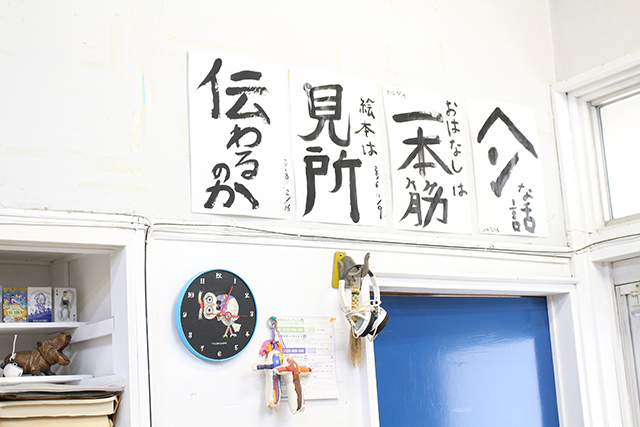 ヘンな話
おはなしは
一本筋
絵本は
見所
伝わるのか